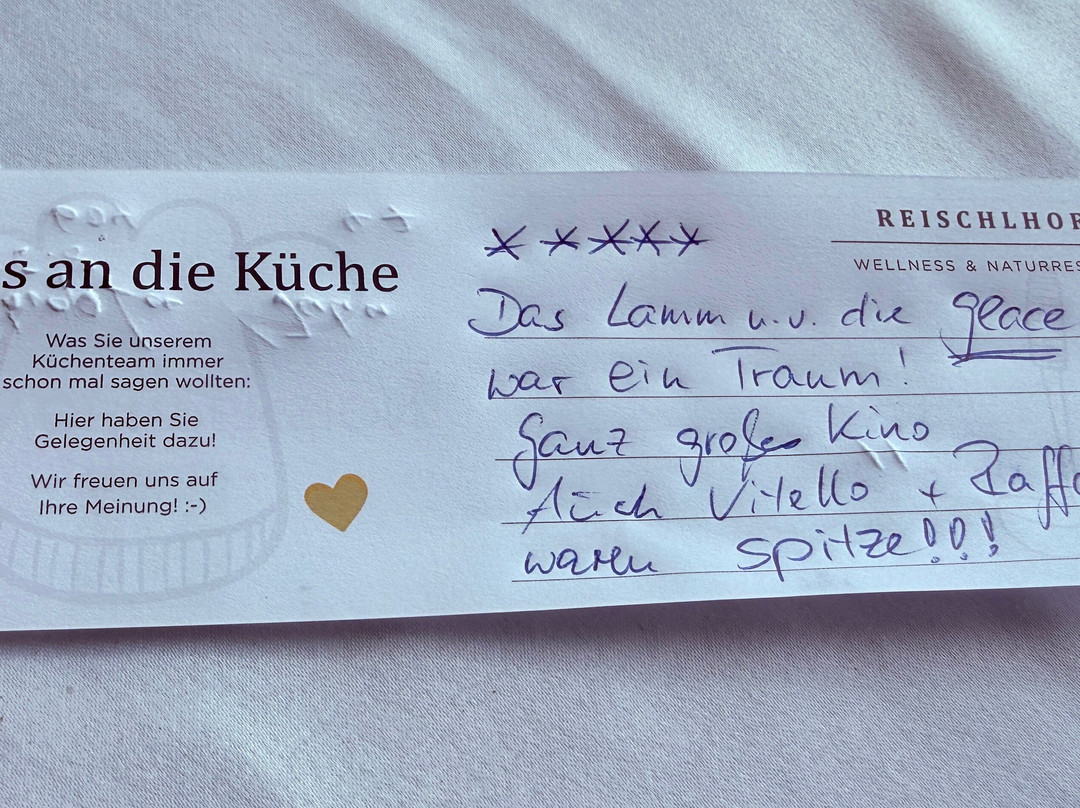 s an die Küche
Was Sie unserem
Küchenteam immer
schon mal sagen wollten:
Hier haben Sie
Gelegenheit dazu!
Wir freuen uns auf
Ihre Meinung! :-)
REISCHLHOF
WELLNESS & NATURRES
*****
Das Lamm u.v. die glace
war ein Traum!
Ganz großes Kino
Auch Vitello + Raffa
waren spitze!!!